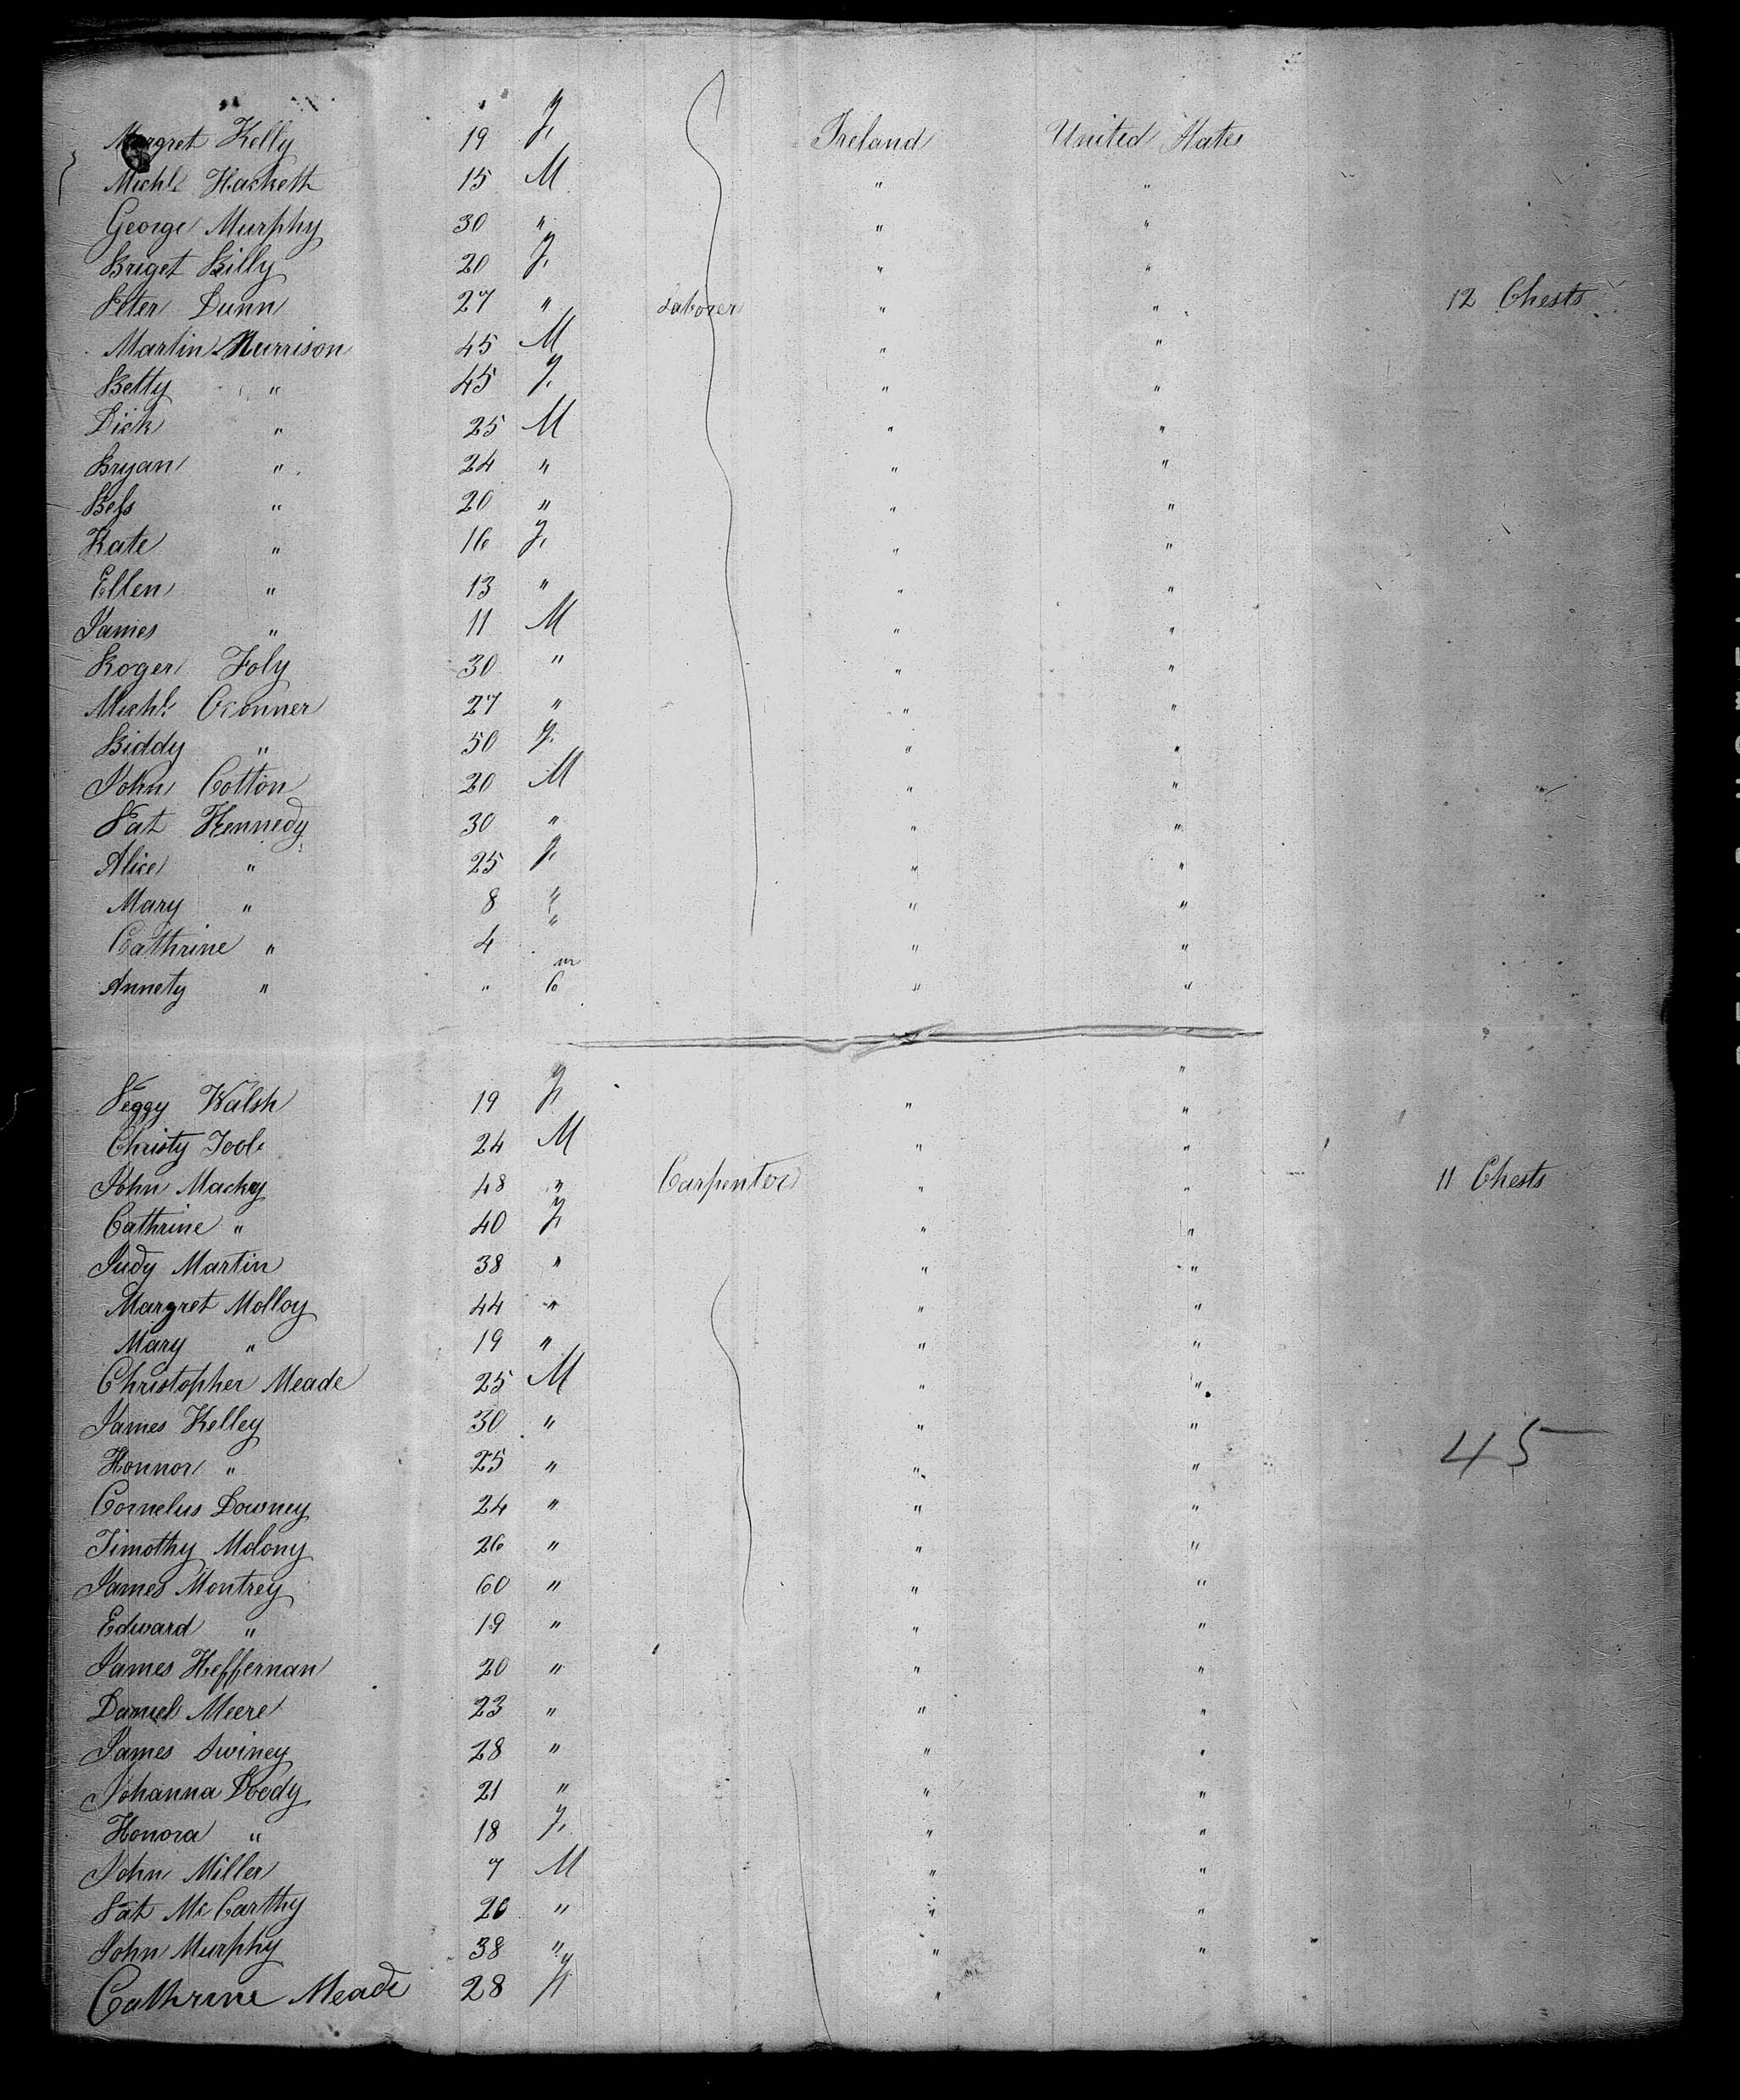 Margret Kelly 19 F Ireland United States
Michl Hackett 15 M " "
George Murphy 30 " " "
Briget Billy 20 F " "
Peter Dunn 27 " Laborer " " 12 Chests
Martin Murrison 45 M " "
Betty " 45 F " "
Dick " 25 M " "
Bryan " 24 " " "
Bess " 20 " " "
Kate " 16 F " "
Ellen " 13 " " "
James " 11 M " "
Roger Foly 30 " " "
Michl Oconner 27 " " "
Biddy " 50 F " "
John Cotton 20 M " "
Pat Kennedy 30 " " "
Alice " 25 F " "
Mary " 8 " " "
Cathrine " 4 " " "
Annety " " m 6 " "
Peggy Walsh 19 F " "
Christy Toole 24 M " "
John Macky 48 " Carpenter " " 11 Chests
Cathrine " 40 F " "
Judy Martin 38 " " "
Margret Molloy 44 " " "
Mary " 19 " " "
Christopher Meade 25 M " "
James Kelley 30 " " "
45
Honnor " 25 " " "
Cornelus Downey 24 " " "
Timothy Molony 26 " " "
James Montrey 60 " " "
Edward " 19 " " "
James Heffernan 20 " " "
Daniel Meere 23 " " "
James Swiney 28 " " "
Johanna Doody 21 " " "
Honora " 18 F " "
John Miller 7 M " "
Pat McCarthy 20 " " "
John Murphy 38 " " "
Cathrine Meade 28 F "